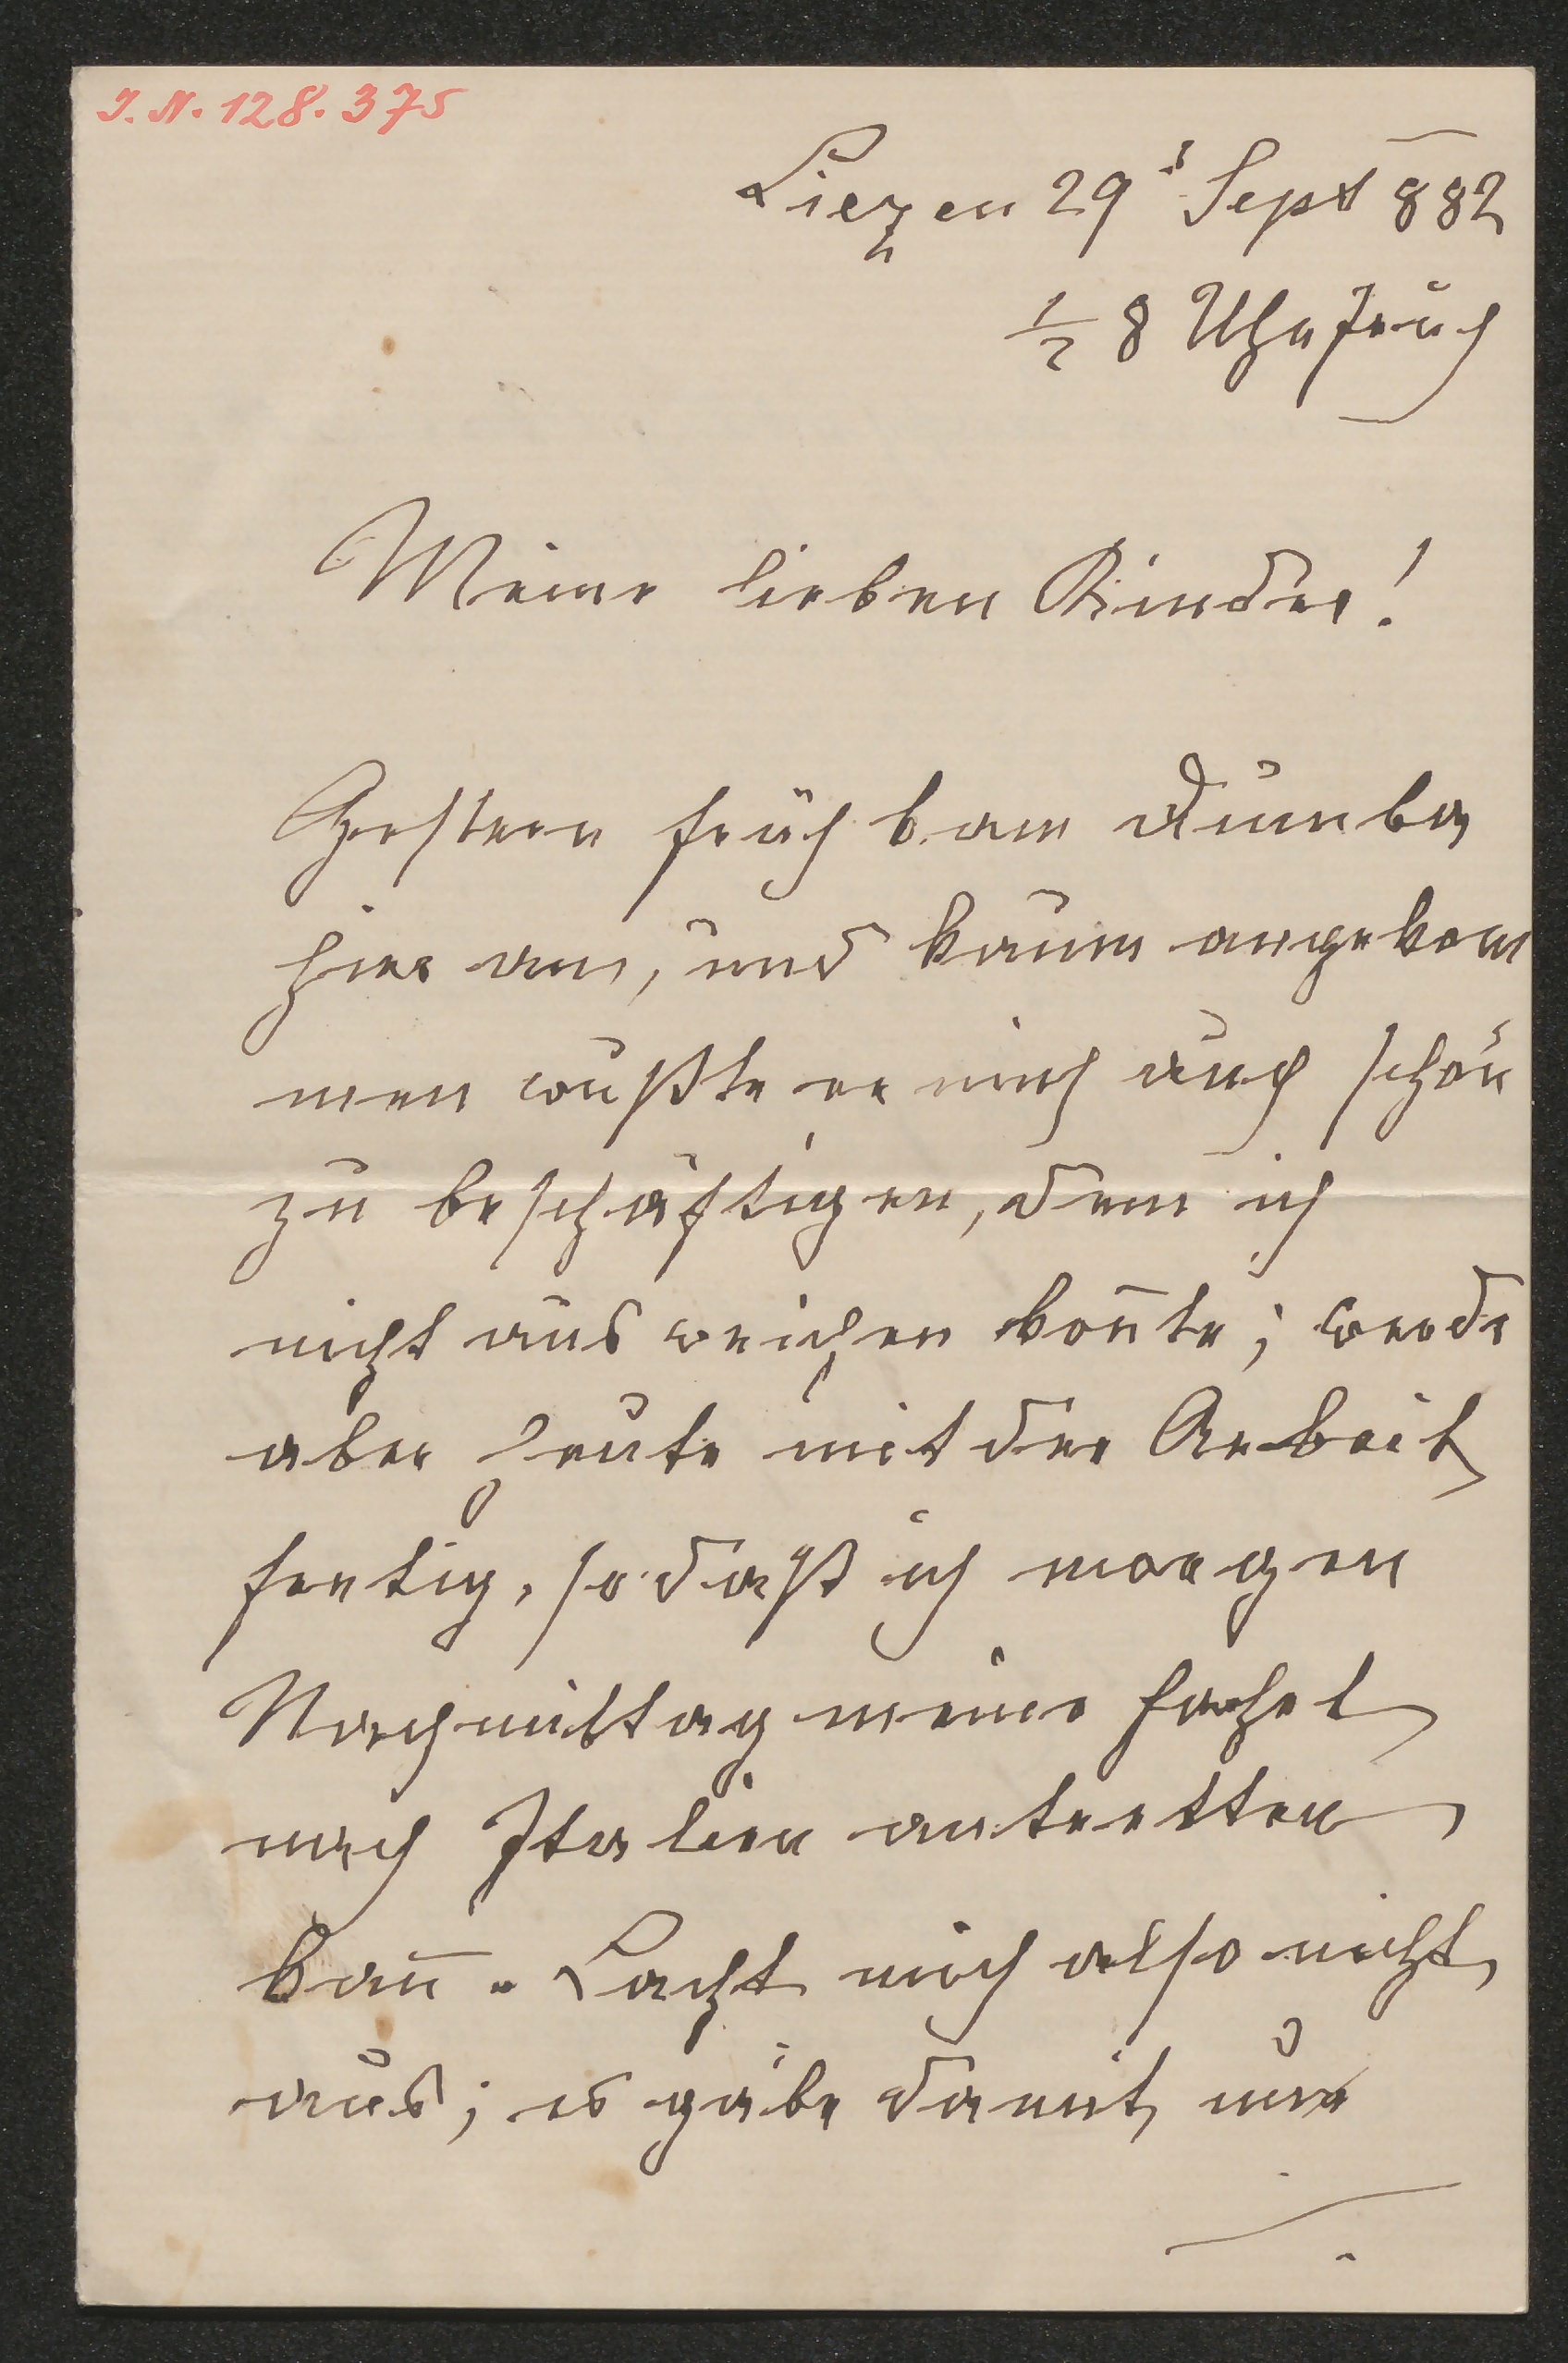 I. N. 128.375
Liezen 29t Sept 882
½ 8 Uhr Früh
Meine lieben Kinder!
Gestern früh kam Dumba
hier an, und kaum angekom
men wußte er mich auch schön
zu beschäftigen, dem ich
nicht ausweichen kon̄te; werde
aber heute mit der Arbeit
fertig, so daß ich morgen
Nachmittag meine Fahrt
nach Italien antretten
kan̄. Lacht mich also nicht
aus; es gäbe damit nur